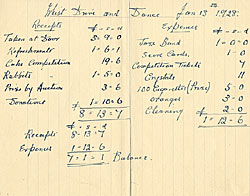 Whist Drive and Dance Jan 13th 1928.
Receipts
£ - s - d
Taken at Door 5-9-0
Refreshments 1-6-1
Cake Competition 19-6
Rabbits 1-5-0
Prize by Auction 3-6
Donations 1-10-6
8-13-7
Receipts £-s-d
8-13-7
Expenses 1-12-6
7-1-1 Balance.
Expenses
£ - s - d
Jazz Band 1-0-0
Score Cards, 1-0
Competition Tickets 7
Crystals 11
100 Cigarettes (Prize) 5-0
oranges 3-0
Cleaning 2-0
1-12-6